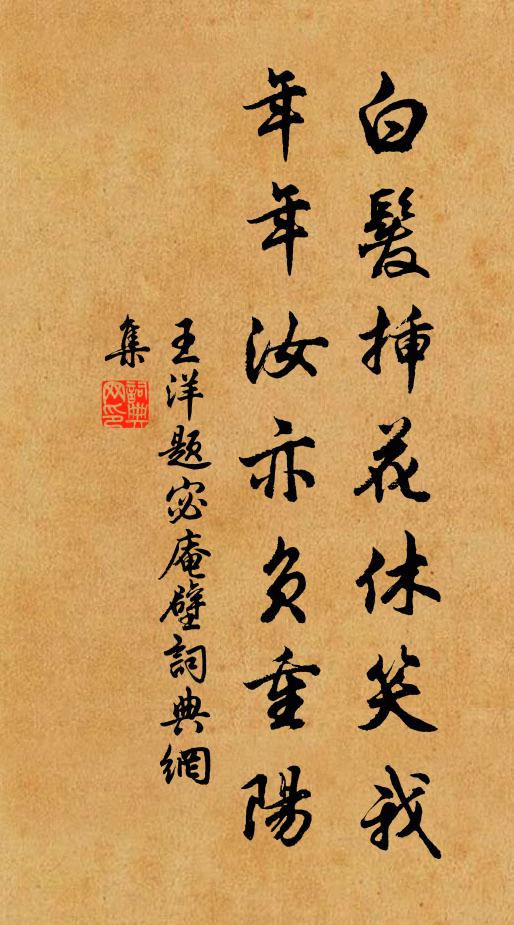 白髮插花休笑我
年年汝亦負重陽
王洋題宓庵壁詞典網
集
詞典網印